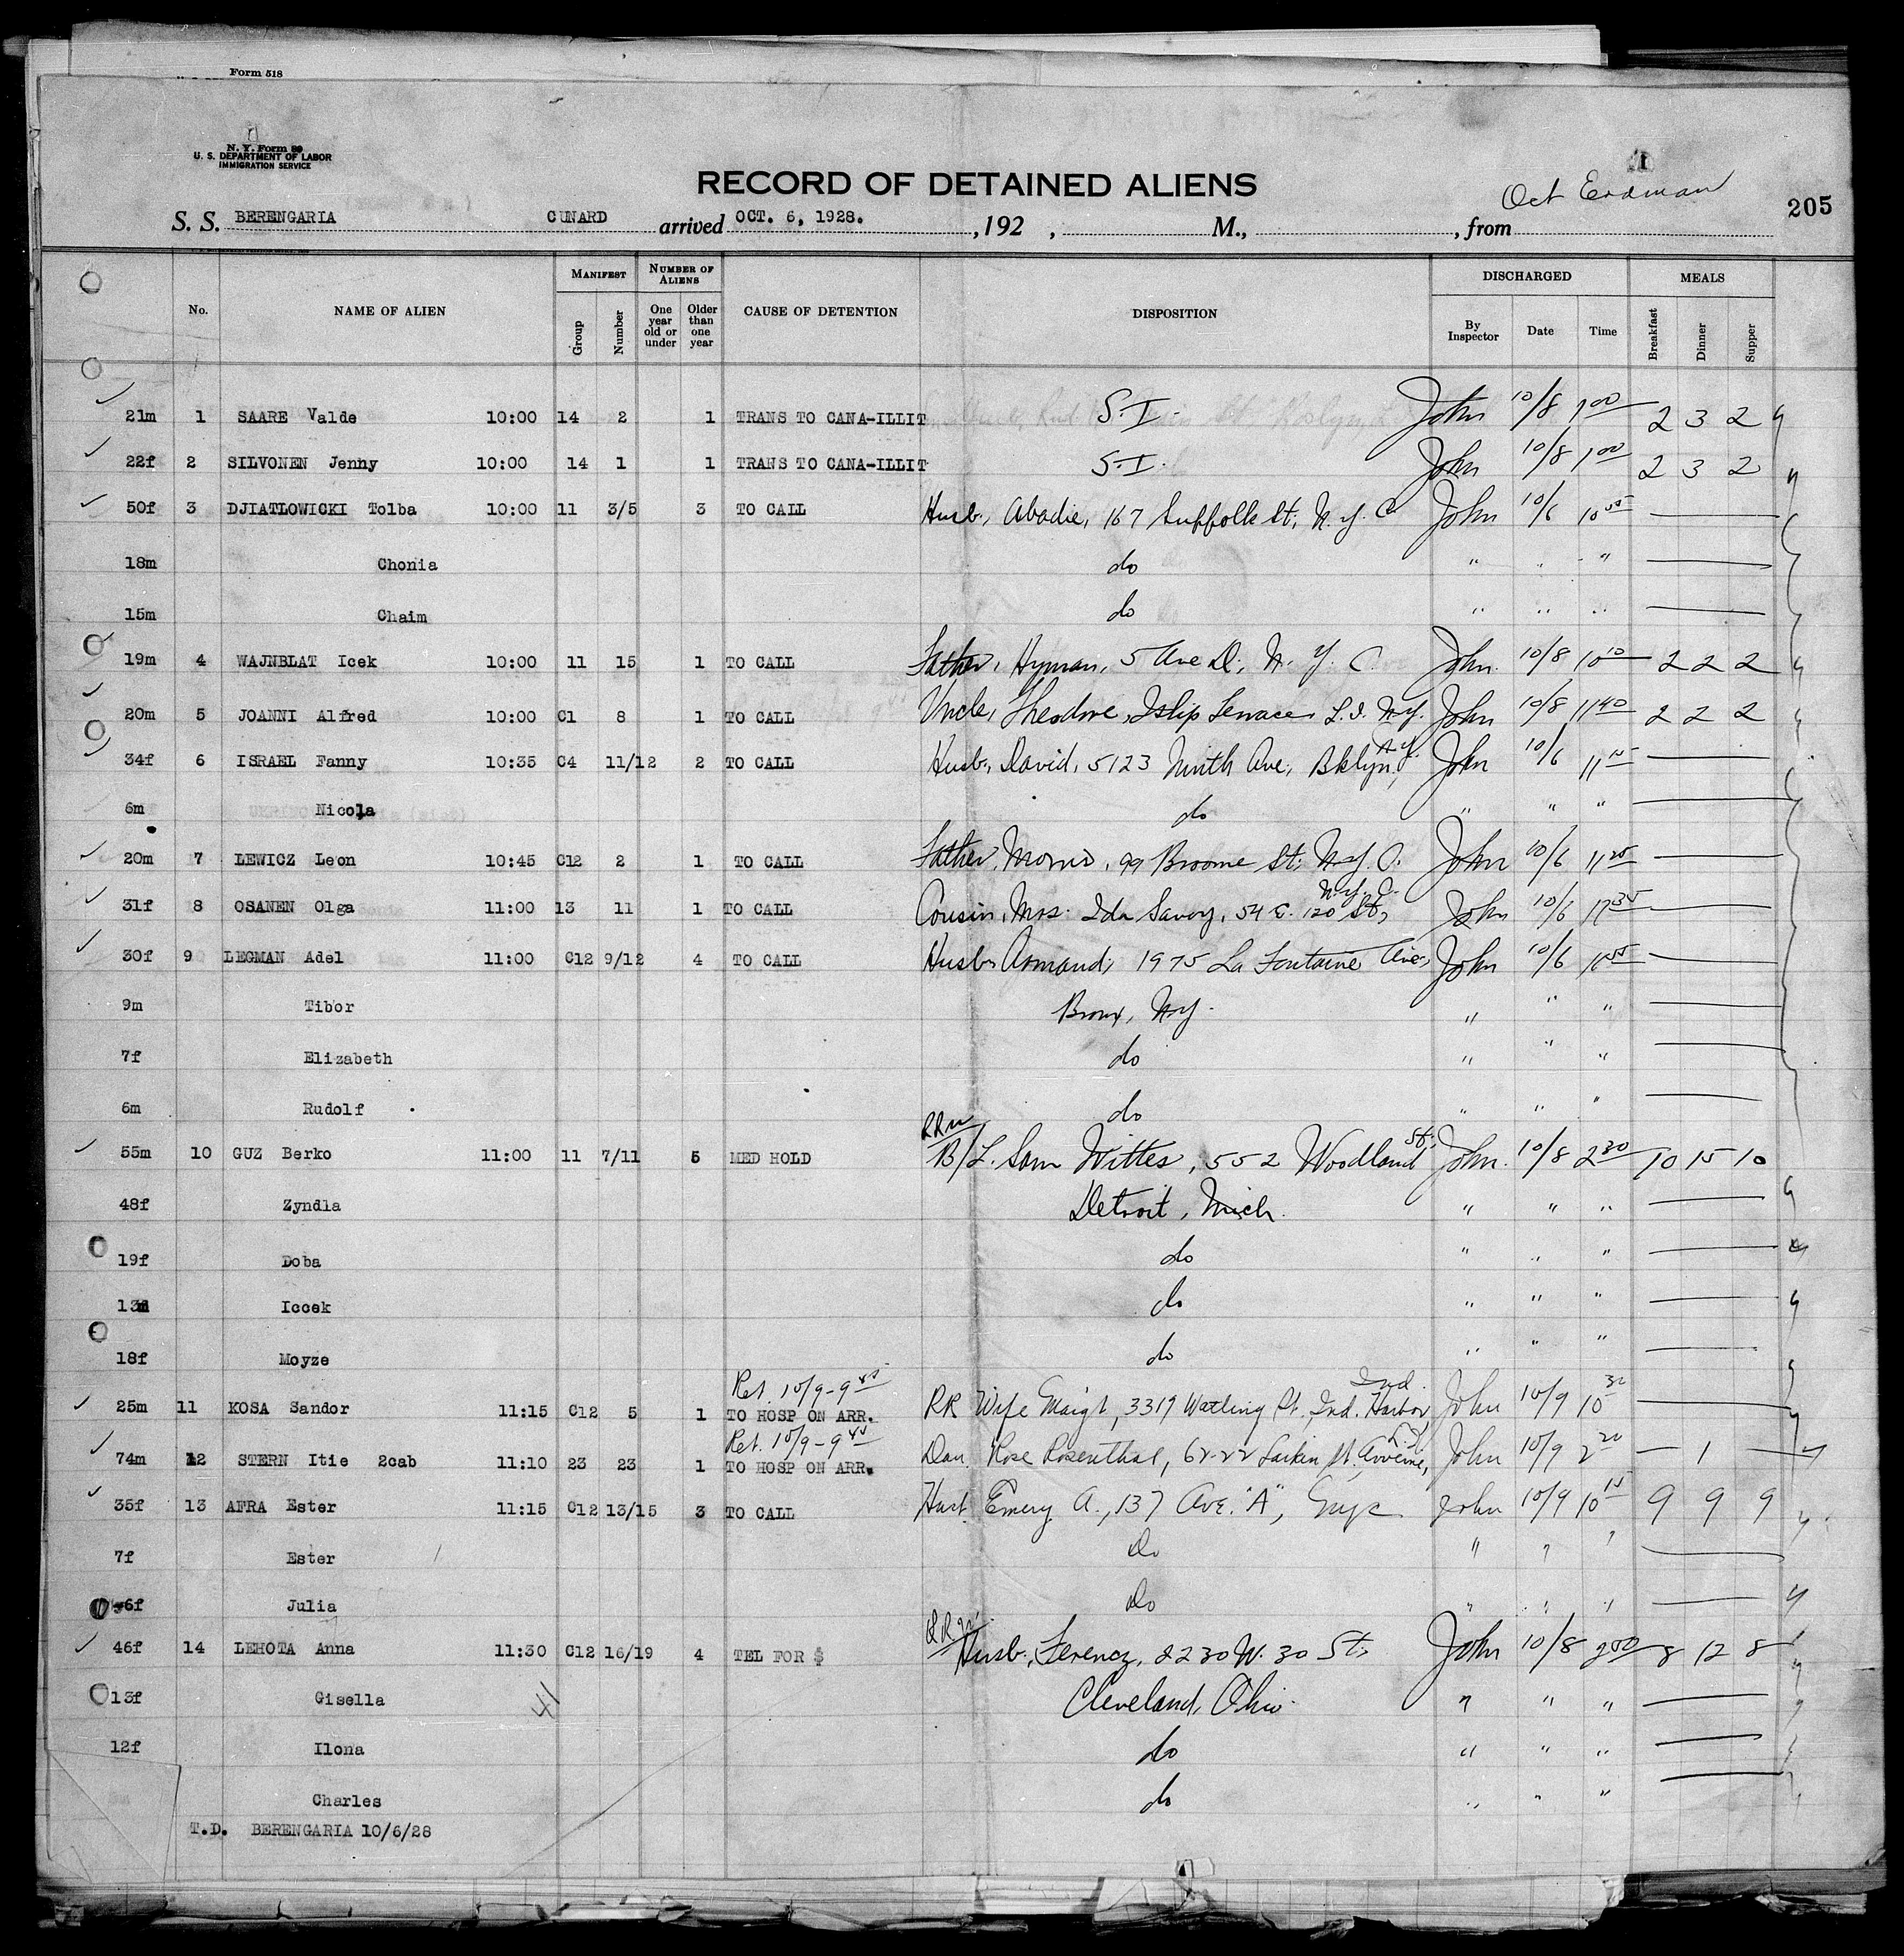 Form 518
N. Y. Form 89
U. S. DEPARTMENT OF LABOR
IMMIGRATION SERVICE
RECORD OF DETAINED ALIENS
Oct Erdman
205
S. S. BERENGARIA CUNARD arrived OCT. 6, 1928. , 192 , M., , from
No. NAME OF ALIEN MANIFEST NUMBER OF ALIENS CAUSE OF DETENTION DISPOSITION DISCHARGED MEALS
Group Number One year old or under Older than one year By Inspector Date Time Breakfast Dinner Supper
21m 1 SAARE Valde 10:00 14 2 1 TRANS TO CANA-ILLIT S.I. John 10/8 1 00 2 3 2
22f 2 SILVONEN Jenny 10:00 14 1 1 TRANS TO CANA-ILLIT S.I. John 10/8 1 00 2 3 2
50f 3 DJIATLOWICKI Tolba 10:00 11 3/5 3 TO CALL Husb., Abadie, 167 Suffolk St., N.Y.C. John 10/6
18m Chonia do " " "
15m Chaim do " " "
19m 4 WAJNBLAT Icek 10:00 11 15 1 TO CALL Father, Hyman, 5 Ave D., N.Y.C John 10/8 10 10 2 2 2
20m 5 JOANNI Alfred 10:00 C1 8 1 TO CALL Uncle, Theodore, Islip Terrace, L.I. N.Y. John 10/8 11 40 2 2 2
34f 6 ISRAEL Fanny 10:35 C4 11/12 2 TO CALL Husb., David, 5123 Ninth Ave., Bklyn, N.Y. John 10/6
6m Nicola do " " "
20m 7 LEWICZ Leon 10:45 C12 2 1 TO CALL Father, Morris, 99 Broome St., N.Y.C. John 10/6 11 25
31f 8 OSANEN Olga 11:00 13 11 1 TO CALL Cousin, Mrs. Ida Savoy, 54 E. 120 St., N.Y.C. John 10/6
30f 9 LEGMAN Adel 11:00 C12 9/12 4 TO CALL Husb. Armand, 1975 La Fontaine Ave., John 10/6
9m Tibor Bronx, N.Y. " " "
7f Elizabeth do " " "
6m Rudolf do " " "
55m 10 GUZ Berko 11:00 11 7/11 5 MED HOLD B/L. Sam Wittes, 552 Woodland St., John 10/8 2 30 10 15 10
48f Zyndla Detroit, Mich. " " "
19f Doba do " " "
13m Iccek do " " "
18f Moyze do " " "
Ret. 10/9-9 45
25m 11 KOSA Sandor 11:15 C12 5 1 TO HOSP ON ARR. RR Wife Maigt, 3319 Watling St. Ind. Harbor, Ind. John 10/9 10 30
Ret. 10/9-9 45
74m 12 STERN Itie 2cab 11:10 23 23 1 TO HOSP ON ARR. Dau. Rose Rosenthal, 62-22 Larkin St. Arverne, L.I. John 10/9 2 20 — 1 —
35f 13 AFRA Ester 11:15 C12 13/15 3 TO CALL Husb. Emery A., 137 Ave. "A", John 10/9 10 15 9 9 9
7f Ester Do " " "
6f Julia Do " " "
46f 14 LEHOTA Anna 11:30 C12 16/19 4 TEL FOR $ Husb., Ferencz, 2230 W. 30 St. John 10/8 2 00 8 12 8
13f Gisella 41 Cleveland, Ohio. " " "
12f Ilona do " " "
Charles do " " "
T.D. BERENGARIA 10/6/28